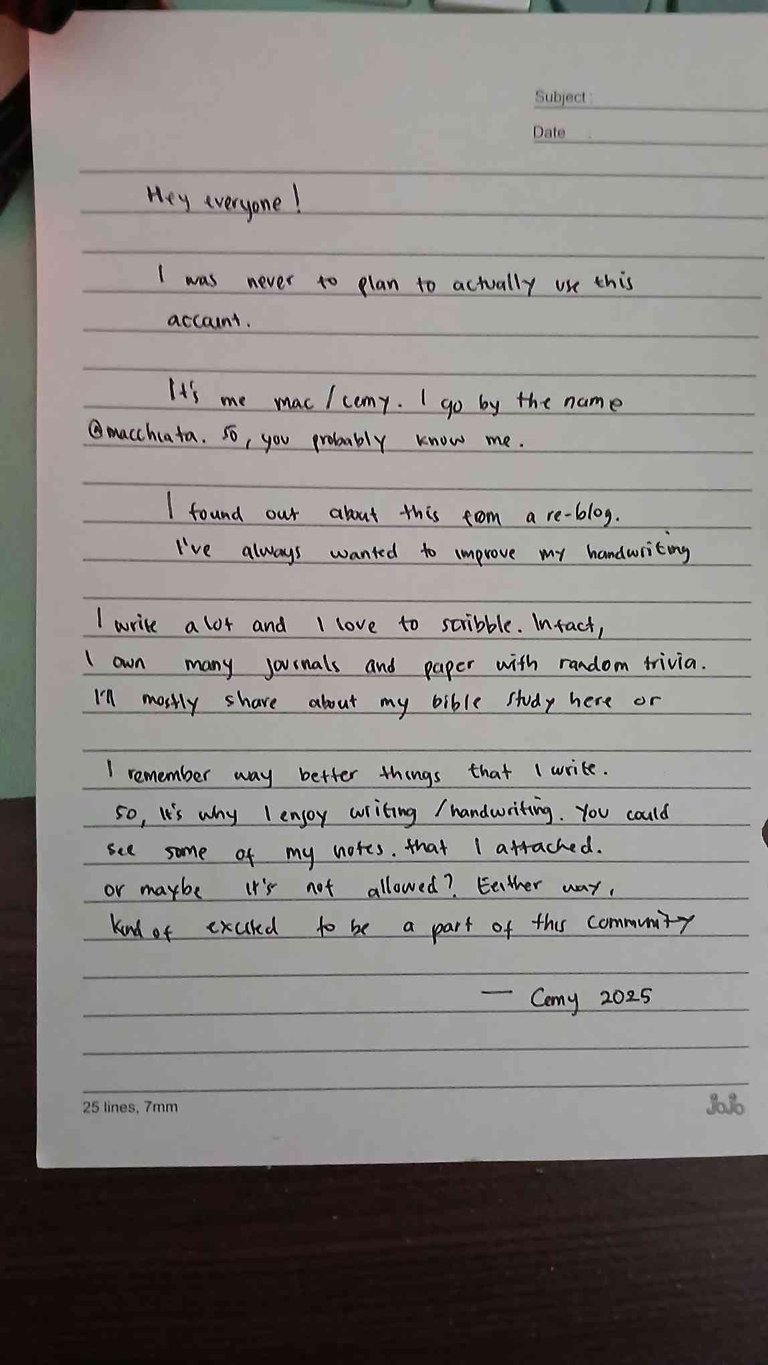 Subject :
Date :
Hey everyone!
I was never to plan to actually use this
account.
It's me mac/cemy. I go by the name
@macchiata. So, you probably know me.
I found out about this from a re-blog.
I've always wanted to improve my handwriting
I write a lot and I love to scribble. In fact,
I own many journals and paper with random trivia.
I'll mostly share about my bible study here or
I remember way better things that I write.
So, it's why I enjoy writing/handwriting. You could
see some of my notes. that I attached.
or maybe it's not allowed? Eeither way,
kind of excited to be a part of this community
— Cemy 2025
25 lines, 7mm
JoJo